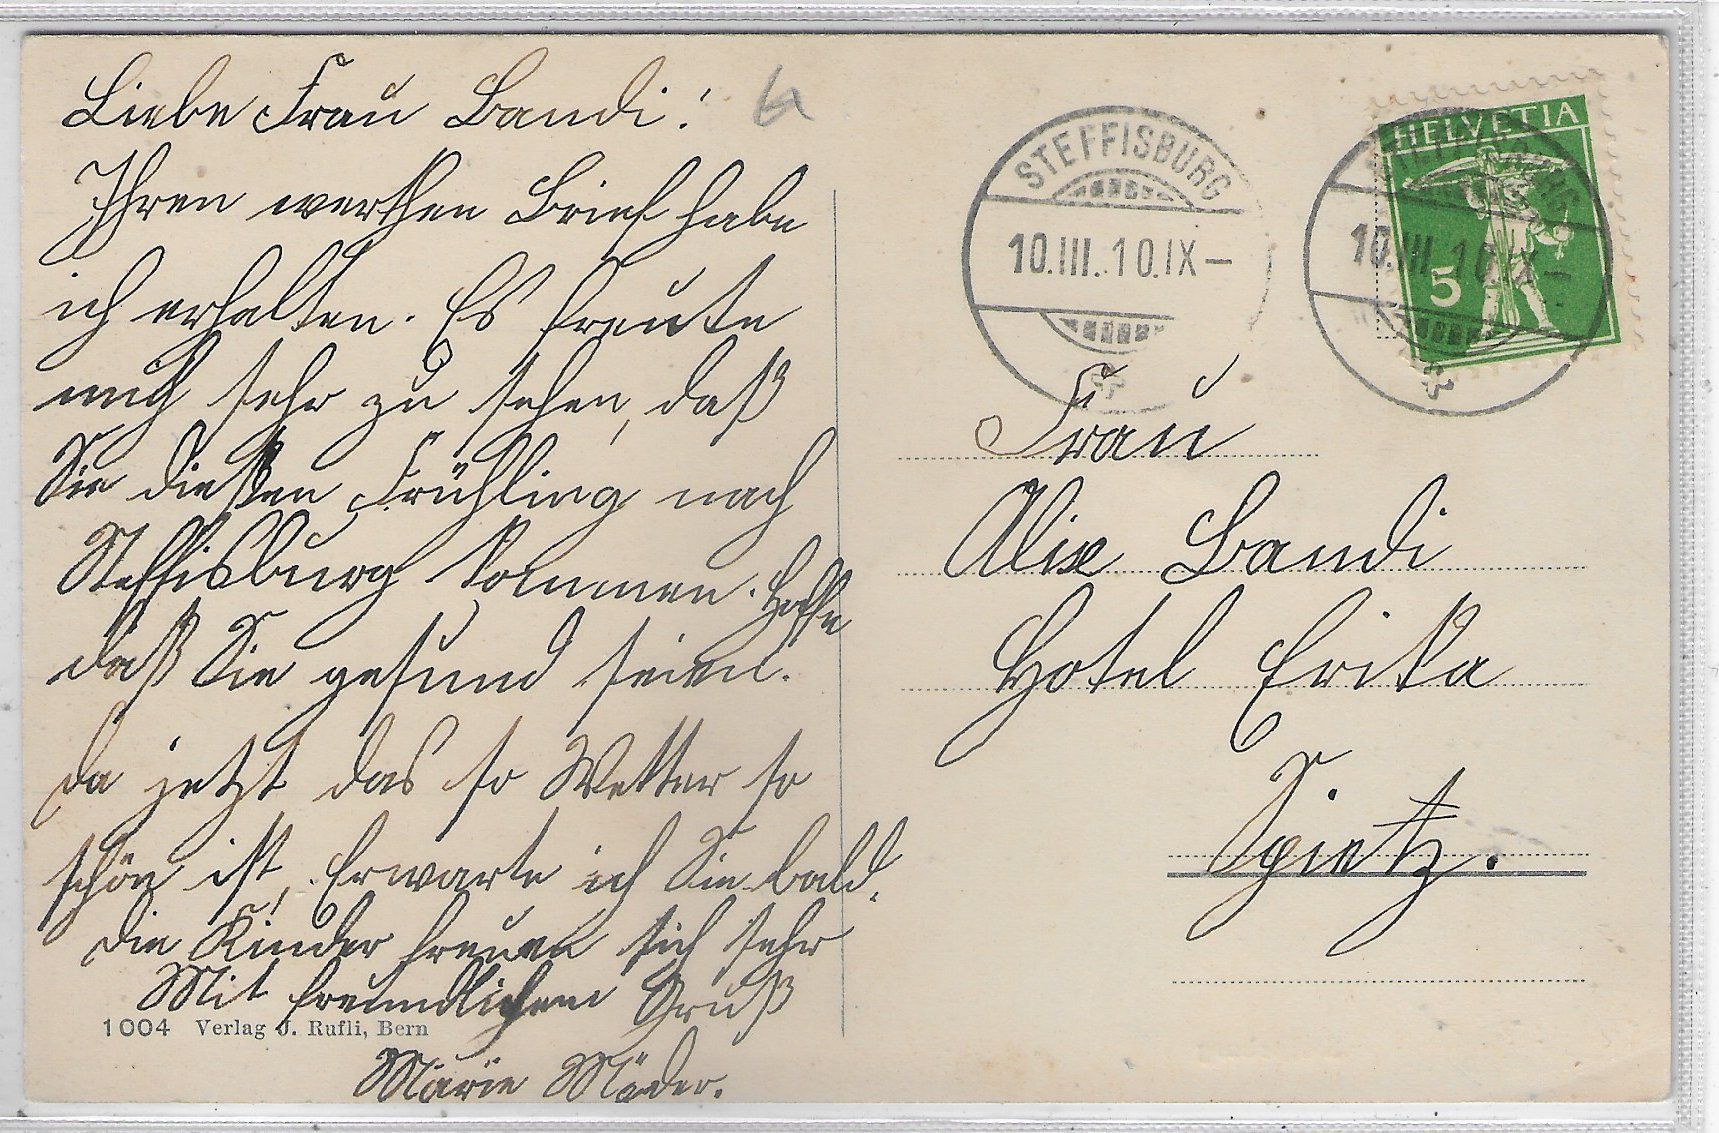 Liebe Frau Bandi!
Ihren werthen Brief habe
ich erhalten. Es freute
mich sehr zu sehen, daß
Sie dießen Frühling nach
Steffisburg kommen. Hoffe
daß Sie gesund seien.
Da jetzt das so Wetter so
schön ist, Erwarte ich Sie bald.
Die Kinder freuen sich sehr
Mit freundlichem Gruß
Marie Möder.
1004 Verlag J. Rufli, Bern
STEFFISBURG
10.III.10.IX–
HELVETIA
5
STEFFISBURG
10.III.10.IX–
Frau
Alise Bandi
Hotel Erika
Spietz.